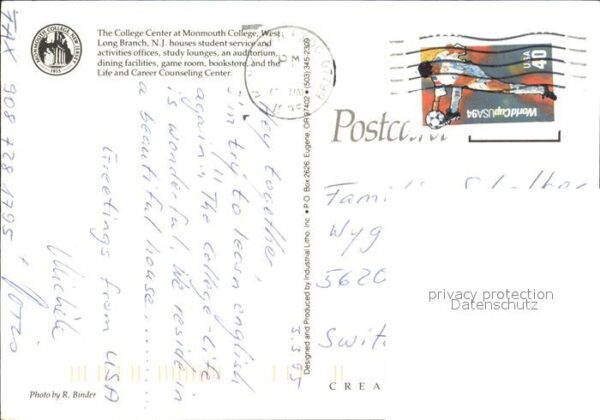 MONMOUTH COLLEGE, NEW JERSEY
1933
The College Center at Monmouth College, West
Long Branch, N.J. houses student service and
activities offices, study lounges, an auditorium,
dining facilities, game room, bookstore, and the
Life and Career Counseling Center.
FAX 908 728 1795
3.3.95
Hey together,
I'm try to learn english
again!! The college-life
is wonderful, we reside in
a beautiful house.........
Greetings from USA
Michèle
Designed and Produced by Industrial Litho, Inc. • P.O. Box 2626, Eugene, OR 97402 • (503) 345-2309
Postcard
USA
40
WorldCupUSA94
Wyg
5620
Swit
privacy protection
Datenschutz
CREA
Photo by R. Binder